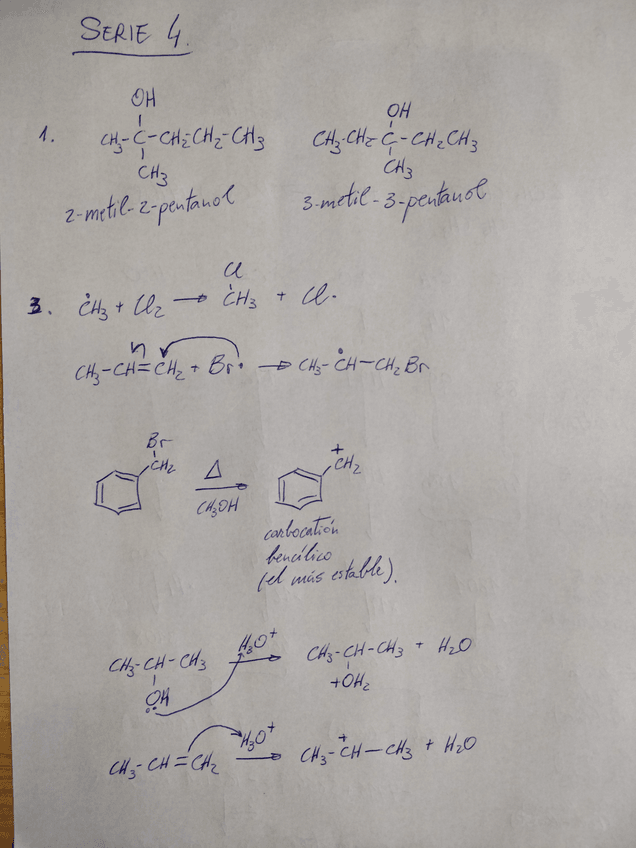 SERIE 4.
OH OH
1. CH3-C-CH2-CH2-CH3 CH3-CH2-C-CH2CH3
CH3 CH3
2-metil-2-pentanol 3-metil-3-pentanol
Cl
3. ĊH3 + Cl2 → CH3 + Cl·
CH3-CH=CH2 + Br· → CH3-ĊH-CH2Br
Br
CH2 Δ + CH2
CH3OH
carbocatión
bencílico
(el más estable).
CH3-CH-CH3 H3O+ → CH3-CH-CH3 + H2O
:OH +OH2
CH3-CH=CH2 H3O+ → CH3-CH+-CH3 + H2O